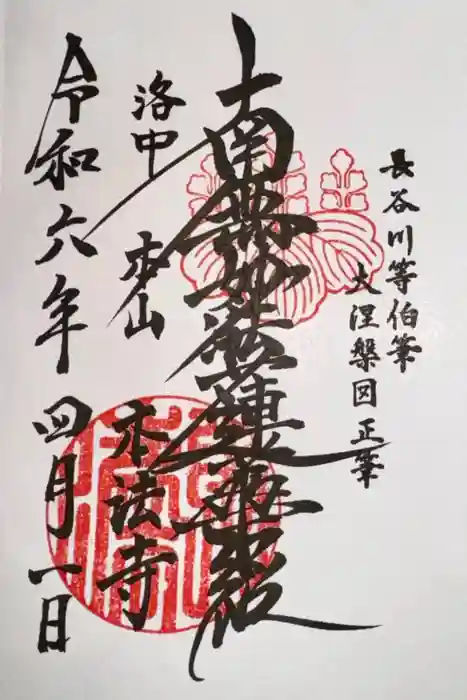 長谷川等伯筆
大涅槃図 正筆
南無妙法蓮華経
洛中
本山
本法寺
令和六年四月一日